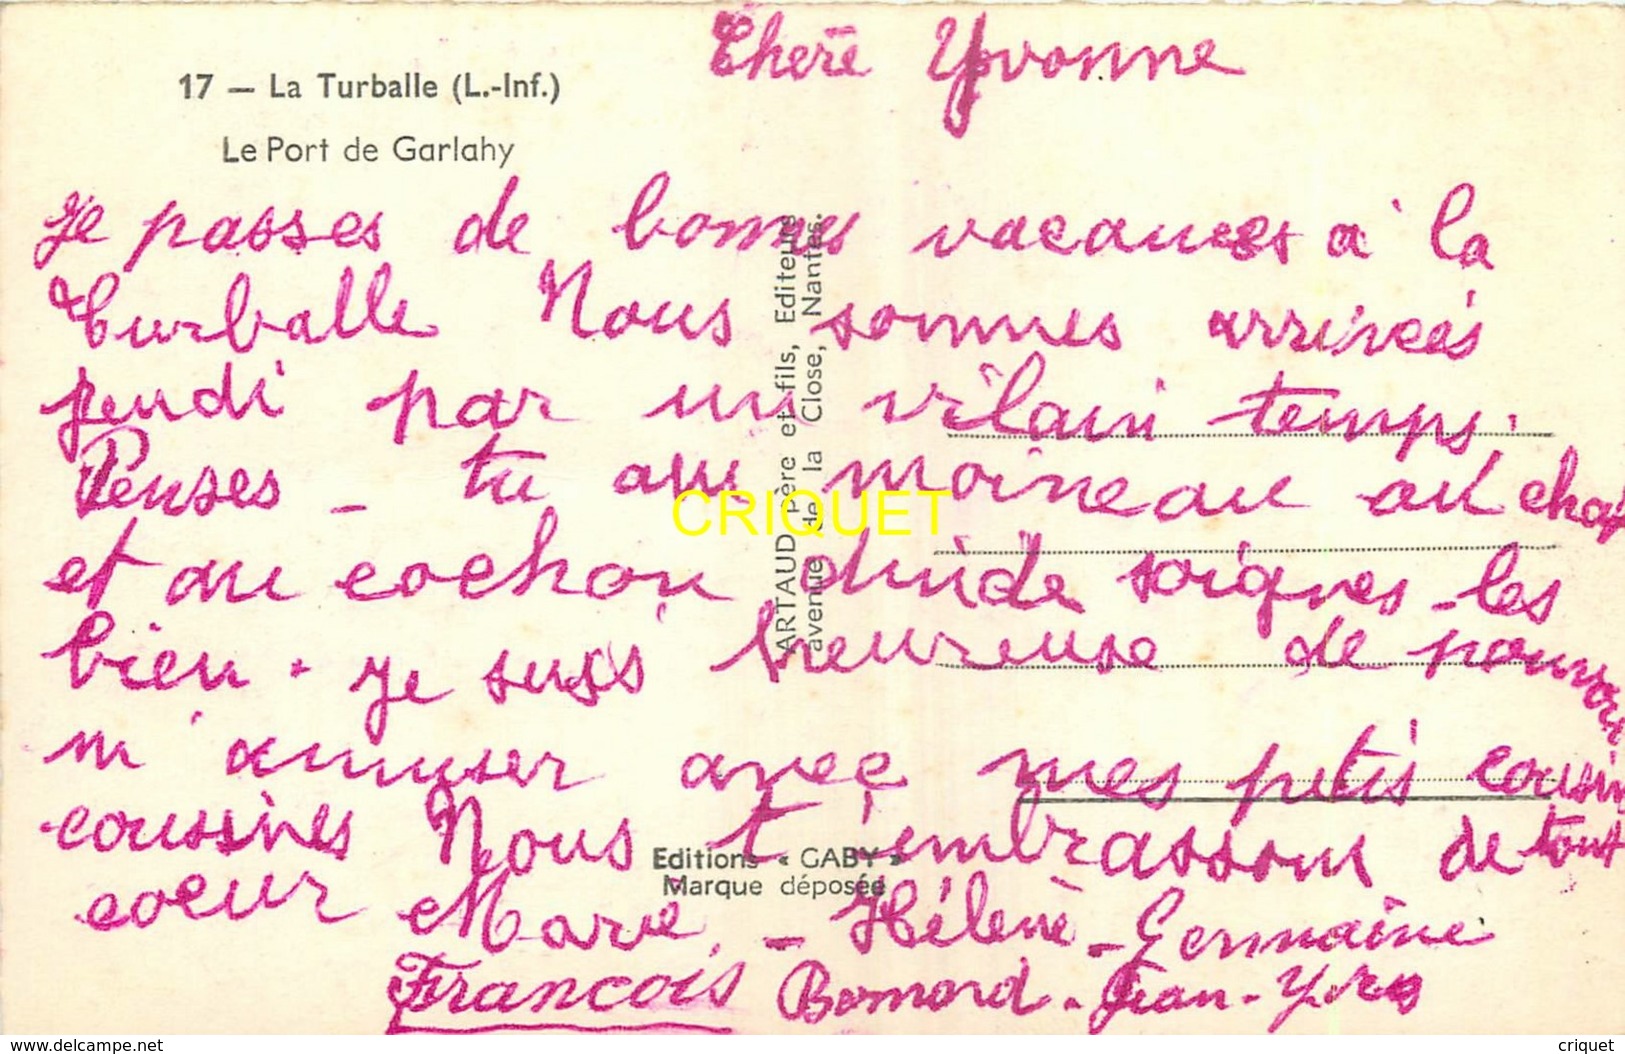 Cherè Yvonne
17 — La Turballe (L.-Inf.)
Le Port de Garlahy
Je passes de bonnes vacances à la
Turballe Nous sommes arrivées
jeudi par un vilain temps.
Penses - tu au moineau au chat
et au cochon d'inde soignes - les
bien. Je suis heureuse de pouvoir
m'amuser avec mes petis cousins
cousines Nous t'embrassons de tout
coeur Marie - Hélène - Germaine
François Bernard - Jean - Yves
ARTAUD Père et fils, Editeurs
avenue de la Close, Nantes.
Editions « GABY »
Marque déposée
CRIQUET
www.delcampe.net
criquet